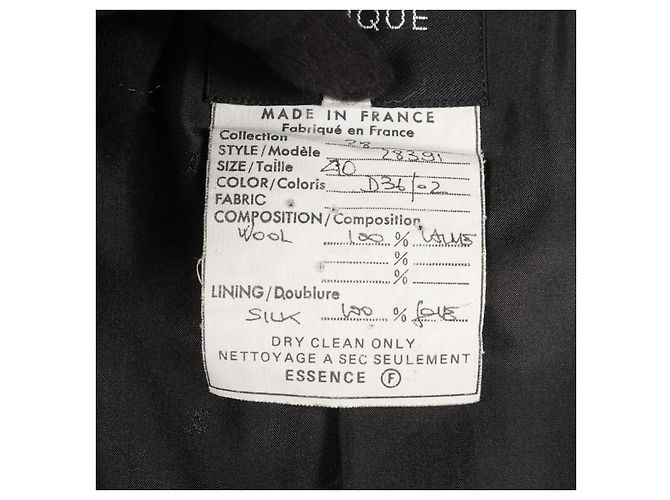 QUE
MADE IN FRANCE
Fabriqué en France
Collection 28
STYLE/Modèle 28391
SIZE/Taille 40
COLOR/Coloris D36/02
FABRIC
COMPOSITION/Composition
WOOL 100 % LAINE
%
%
LINING/Doublure
SILK 100 % SOIE
DRY CLEAN ONLY
NETTOYAGE A SEC SEULEMENT
ESSENCE F